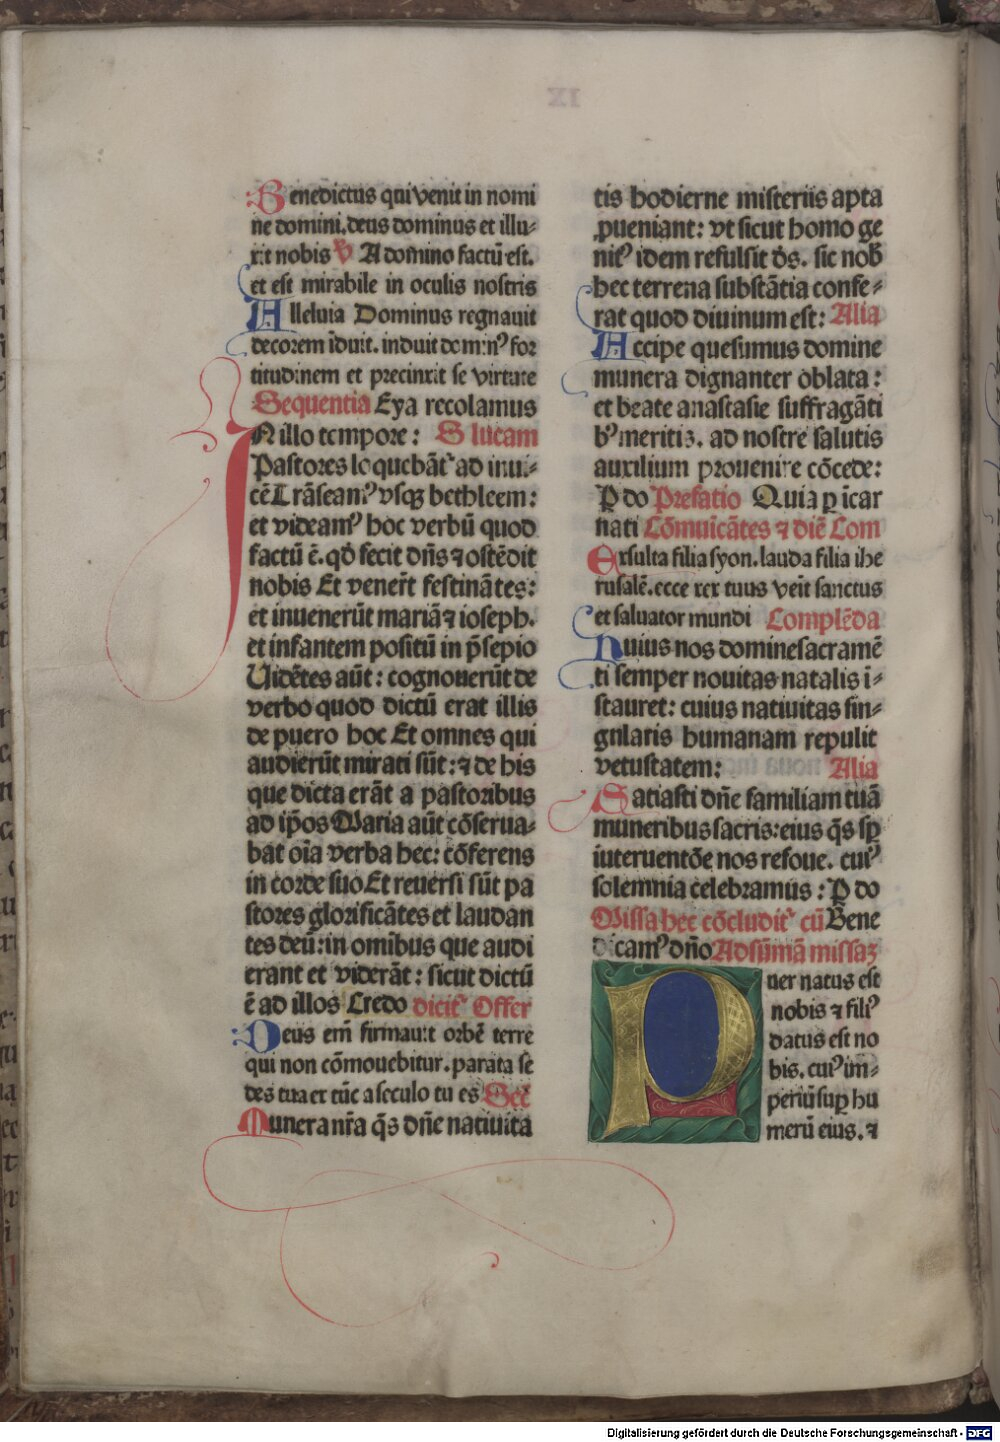 Benedictus qui venit in nomi
ne domini. deus dominus et illu-
xit nobis V A domino factū est.
et est mirabile in oculis nostris
Alleluia Dominus regnauit
decorem īduit. induit domin⁹ for
titudinem et precinxit se virtute
Sequentia Eya recolamus
IN illo tempore: S lucam
Pastores loquebāt᷑ ad inui-
cē Trāseam⁹ vsqꝫ bethleem:
et videam⁹ hoc verbū quod
factū ē. qḋ fecit dn̄s ⁊ ostēdit
nobis Et vener̄t festinātes:
et inuenerūt mariā ⁊ ioseph.
et infantem positū in p̄sepio
Uidētes aūt: cognouerūt de
verbo quod dictū erat illis
de puero hoc Et omnes qui
audierūt mirati sūt: ⁊ de his
que dicta erāt a pastoribus
ad ip̄os Maria aūt cōserua-
bat oīa verba hec: cōferens
in corde suo Et reuersi sūt pa
stores glorificātes et laudan
tes deū: in omībus que audi
erant et viderāt: sicut dictū
ē ad illos Credo dicit᷑ Offer
Deus em̄ firmauit orbē terre
qui non cōmouebitur. parata se
des tua ex tūc a seculo tu es Sec̄
Munera nr̄a q̄s dn̄e natiuita
tis hodierne misteriis apta
ꝓueniant: vt sicut homo ge
nit⁹ idem refulsit d̄s. sic nob̄
hec terrena substātia confe-
rat quod diuinum est: Alia
Accipe quesumus domine
munera dignanter oblata:
et beate anastasie suffragāti
b⁹ meritis. ad nostre salutis
auxilium prouenire cōcede:
P do Prefatio Quia ꝑ īcar
nati Cōmuīcātes ⁊ diē Com
Exsulta filia syon. lauda filia ihe
rusalē. ecce rex tuus veīt sanctus
et saluator mundi Complēda
Huius nos domine sacramē
ti semper nouitas natalis i-
stauret: cuius natiuitas sin-
gularis humanam repulit
vetustatem: Alia
Satiasti dn̄e familiam tuā
muneribus sacris: eius q̄s sꝑ
interuentōe nos refoue. cui⁹
solemnia celebramus: P do
Missa hec cōcludit᷑ cū Bene
dicam⁹ dn̄o Ad sūmā missaꝫ
Puer natus est
nobis ⁊ fili⁹
datus est no
bis. cui⁹ im-
periū suꝑ hu
merū eius. ⁊
Digitalisierung gefördert durch die Deutsche Forschungsgemeinschaft - DFG